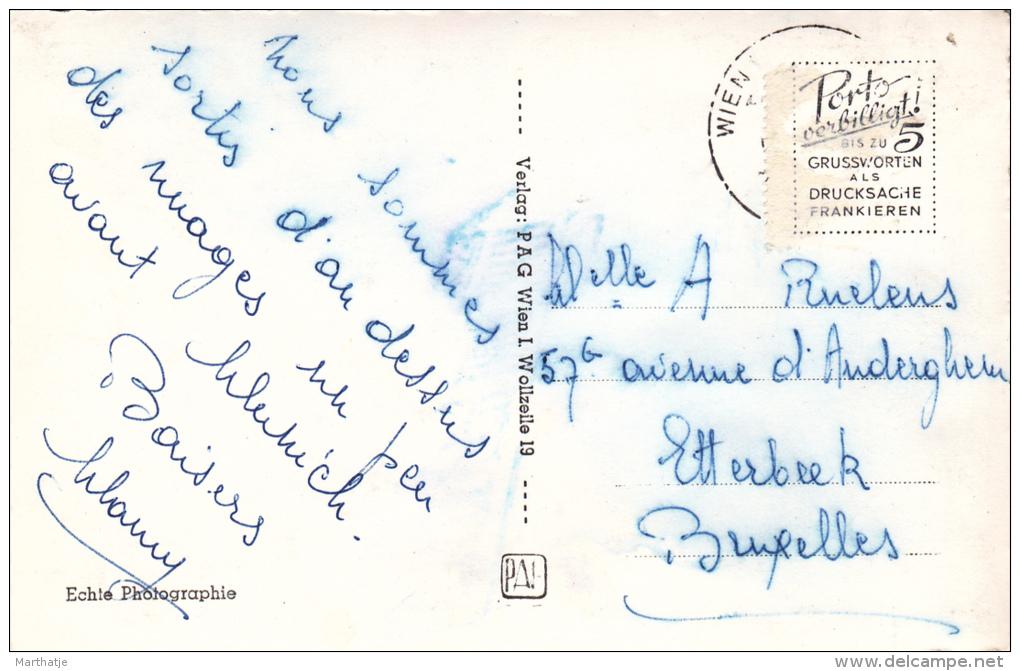 Nous sommes
sortis d'au dessus
des nuages un peu
avant Munich.
Baisers
Verlag: PAG Wien I. Wollzeile 19
WIEN
Porto
verbilligt!
BIS ZU 5
GRUSSWORTEN
ALS
DRUCKSACHE
FRANKIEREN
Melle A Ruelens
57G avenue d'Anderghem
Etterbeek
Bruxelles
Echte Photographie
PAG
Marthatje
delcampe.net